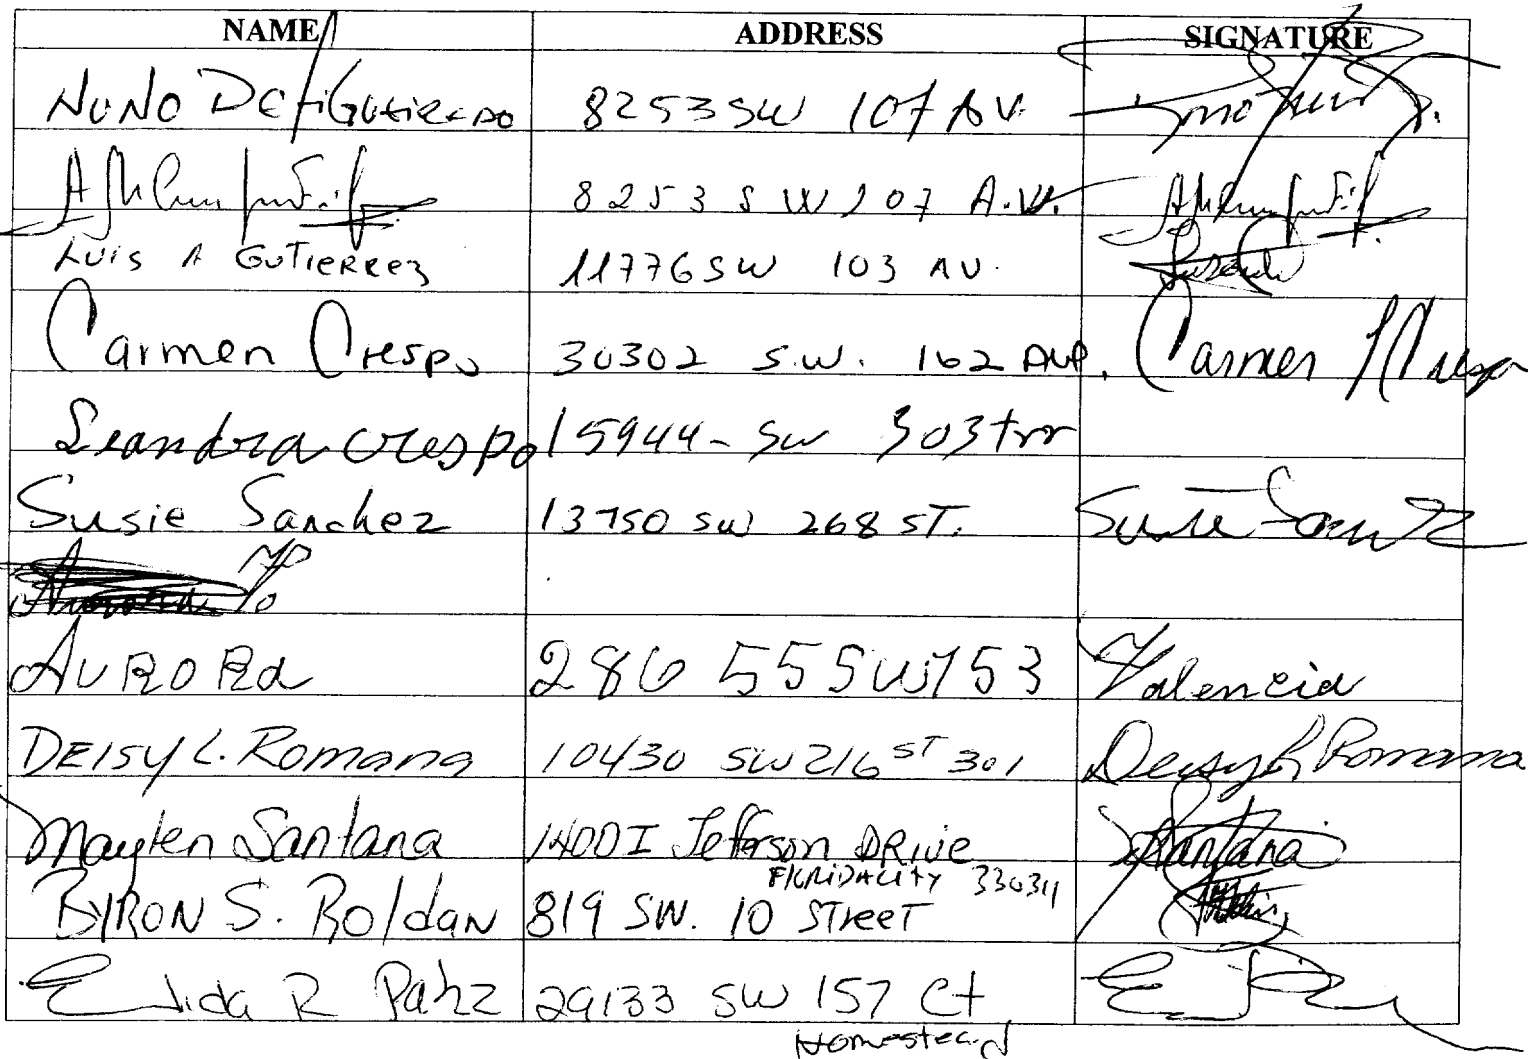 NAME ADDRESS SIGNATURE
NUNO 8253 SW 107 AV.
8253 SW 107 A.V.
LUIS A GUTIERREZ 11776 SW 103 AV.
Carmen Crespo 30302 S.W. 162 AVE. Carmen Crespo
Leandra Crespo 15944- SW 303 trr
Susie Sanchez 13750 SW 268 ST. Susie
AURORa 286 55 SW 153 Valencia
DEISY L. Romana 10430 SW 216 ST 301 Deisy L Romana
Mayten Santana 1400 I Jefferson DRive Santana
FlORIDA CITY
BYRON S. Roldan 819 SW. 10 STreeT
Elida R Pahz 29133 SW 157 Ct
Homestead